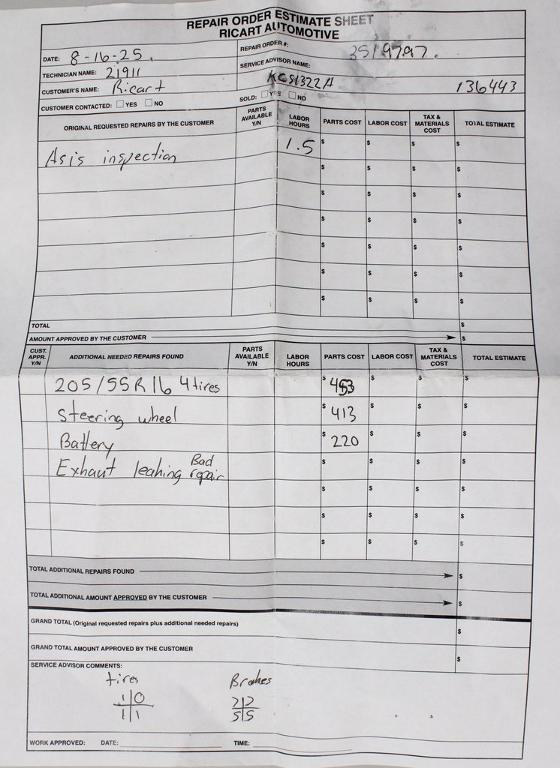 REPAIR ORDER ESTIMATE SHEET
RICART AUTOMOTIVE
DATE: 8-16-25.
REPAIR ORDER #: 3519797.
TECHNICIAN NAME: 21911
SERVICE ADVISOR NAME:
CUSTOMER'S NAME: Ricart
KGS1322A
136443
CUSTOMER CONTACTED: YES NO
SOLD: YES NO
ORIGINAL REQUESTED REPAIRS BY THE CUSTOMER PARTS AVAILABLE Y/N LABOR HOURS PARTS COST LABOR COST TAX & MATERIALS COST TOTAL ESTIMATE
As is inspection 1.5 $ $ $ $
$ $ $ $
$ $ $ $
$ $ $ $
$ $ $ $
$ $ $ $
$ $ $ $
TOTAL $
AMOUNT APPROVED BY THE CUSTOMER $
CUST. APPR. Y/N ADDITIONAL NEEDED REPAIRS FOUND PARTS AVAILABLE Y/N LABOR HOURS PARTS COST LABOR COST TAX & MATERIALS COST TOTAL ESTIMATE
205/55R16 4 tires $ $ $ $
Steering wheel $ 413 $ $ $
Battery $ 220 $ $ $
Exhaut leaking Bad repair $ $ $ $
$ $ $ $
$ $ $ $
$ $ $ $
TOTAL ADDITIONAL REPAIRS FOUND $
TOTAL ADDITIONAL AMOUNT APPROVED BY THE CUSTOMER $
GRAND TOTAL (Original requested repairs plus additional needed repairs) $
GRAND TOTAL AMOUNT APPROVED BY THE CUSTOMER $
SERVICE ADVISOR COMMENTS:
tires Brakes
1 0 2 2
1 1 5 5
WORK APPROVED: DATE: TIME: